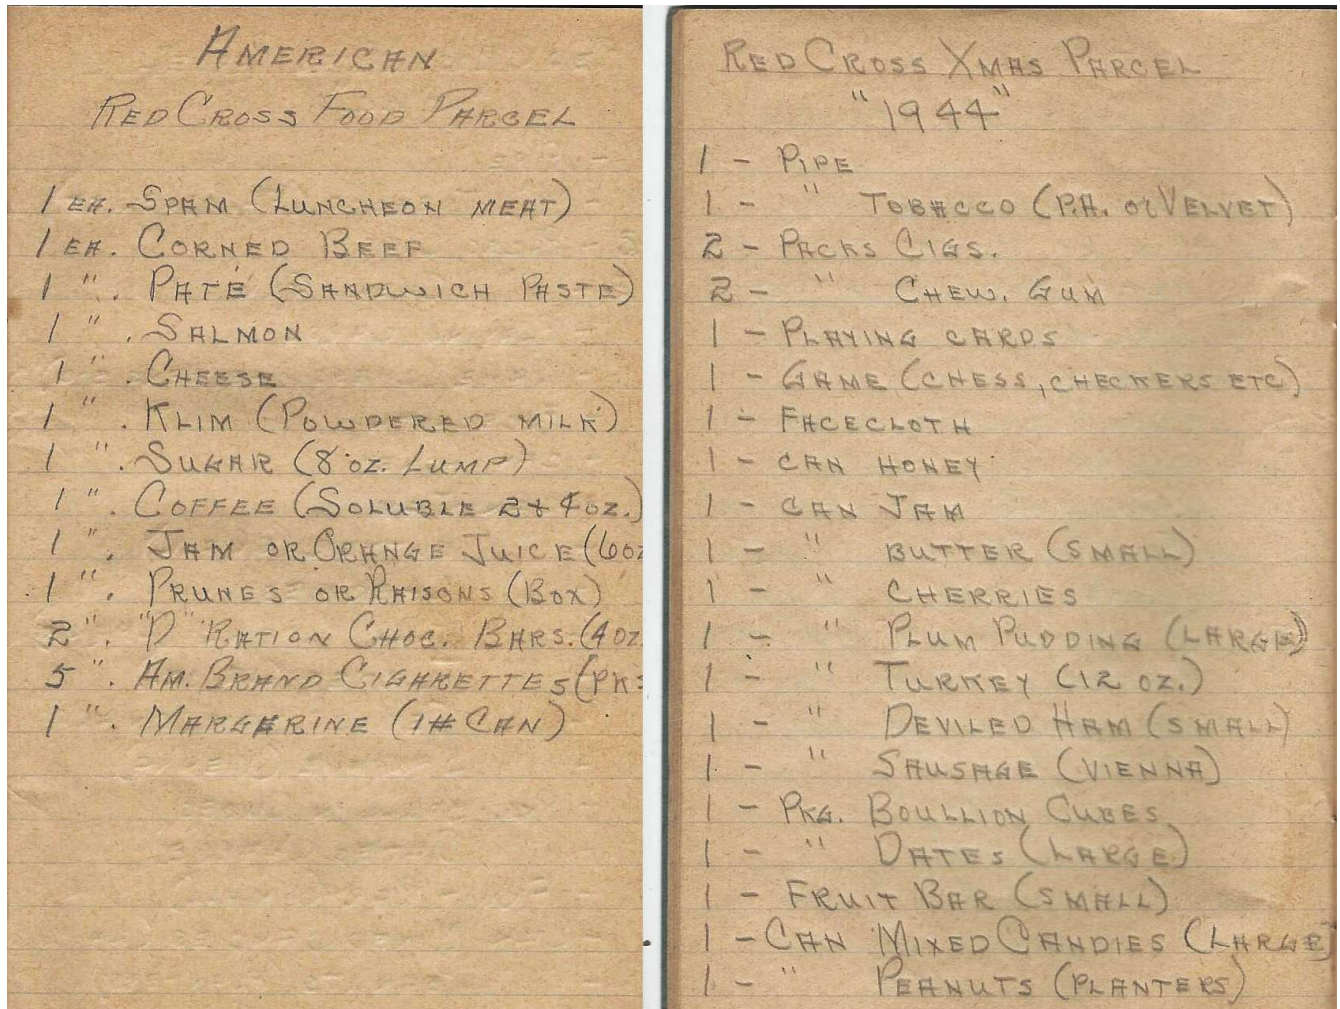 AMERICAN
RED CROSS FOOD PARCEL
1 EA. SPAM (LUNCHEON MEAT)
1 EA. CORNED BEEF
1 ". PATÉ (SANDWICH PASTE)
1 ". SALMON
1 ". CHEESE
1 ". KLIM (POWDERED MILK)
1 ". SUGAR (8 OZ. LUMP)
1 ". COFFEE (SOLUBLE 2 & 4 OZ.)
1 ". JAM OR ORANGE JUICE (6 OZ
1 ". PRUNES OR RAISONS (BOX)
2 ". "D" RATION CHOC. BARS. (4 OZ.
5 ". AM. BRAND CIGARETTES (PKS
1 ". MARGARINE (1# CAN)
RED CROSS XMAS PARCEL
"1944"
1 - PIPE
1 - " TOBACCO (P.A. or VELVET)
2 - PACKS CIGS.
2 - " CHEW. GUM
1 - PLAYING CARDS
1 - GAME (CHESS, CHECKERS ETC)
1 - FACECLOTH
1 - CAN HONEY
1 - CAN JAM
1 - " BUTTER (SMALL)
1 - " CHERRIES
1 - " PLUM PUDDING (LARGE)
1 - " TURKEY (12 OZ.)
1 - " DEVILED HAM (SMALL)
1 - " SAUSAGE (VIENNA)
1 - PKG. BOULLION CUBES
1 - " DATES (LARGE)
1 - FRUIT BAR (SMALL)
1 - CAN MIXED CANDIES (LARGE)
1 - " PEANUTS (PLANTERS)